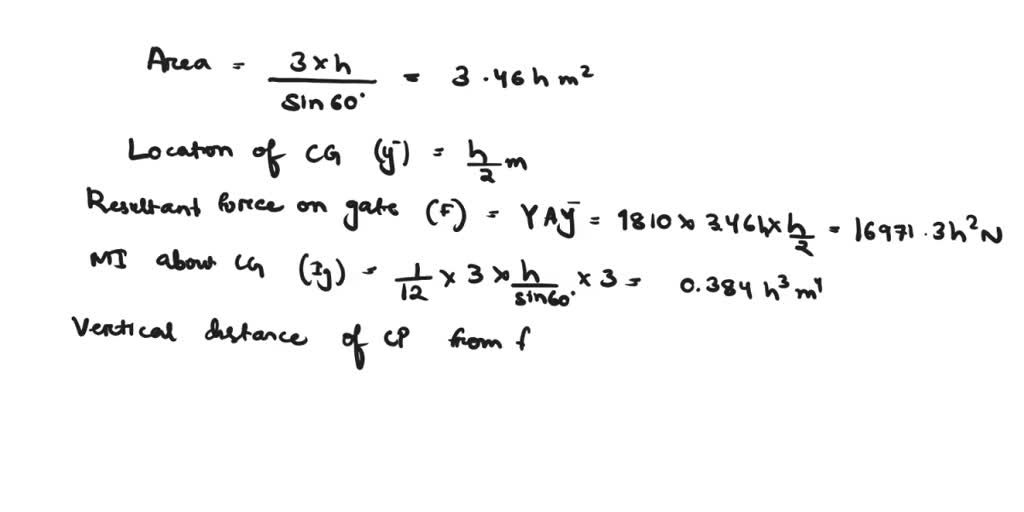 Area = 3 × h / sin 60° = 3.46 h m²
Location of CG (ȳ) = h/2 m
Resultant force on gate (F) = γAȳ = 9810 × 3.46h × h/2 = 16971.3h² N
MI about CG (Ig) = 1/12 × 3 × h/sin60° × 3 = 0.384 h³ m⁴
Vertical distance of CP from f